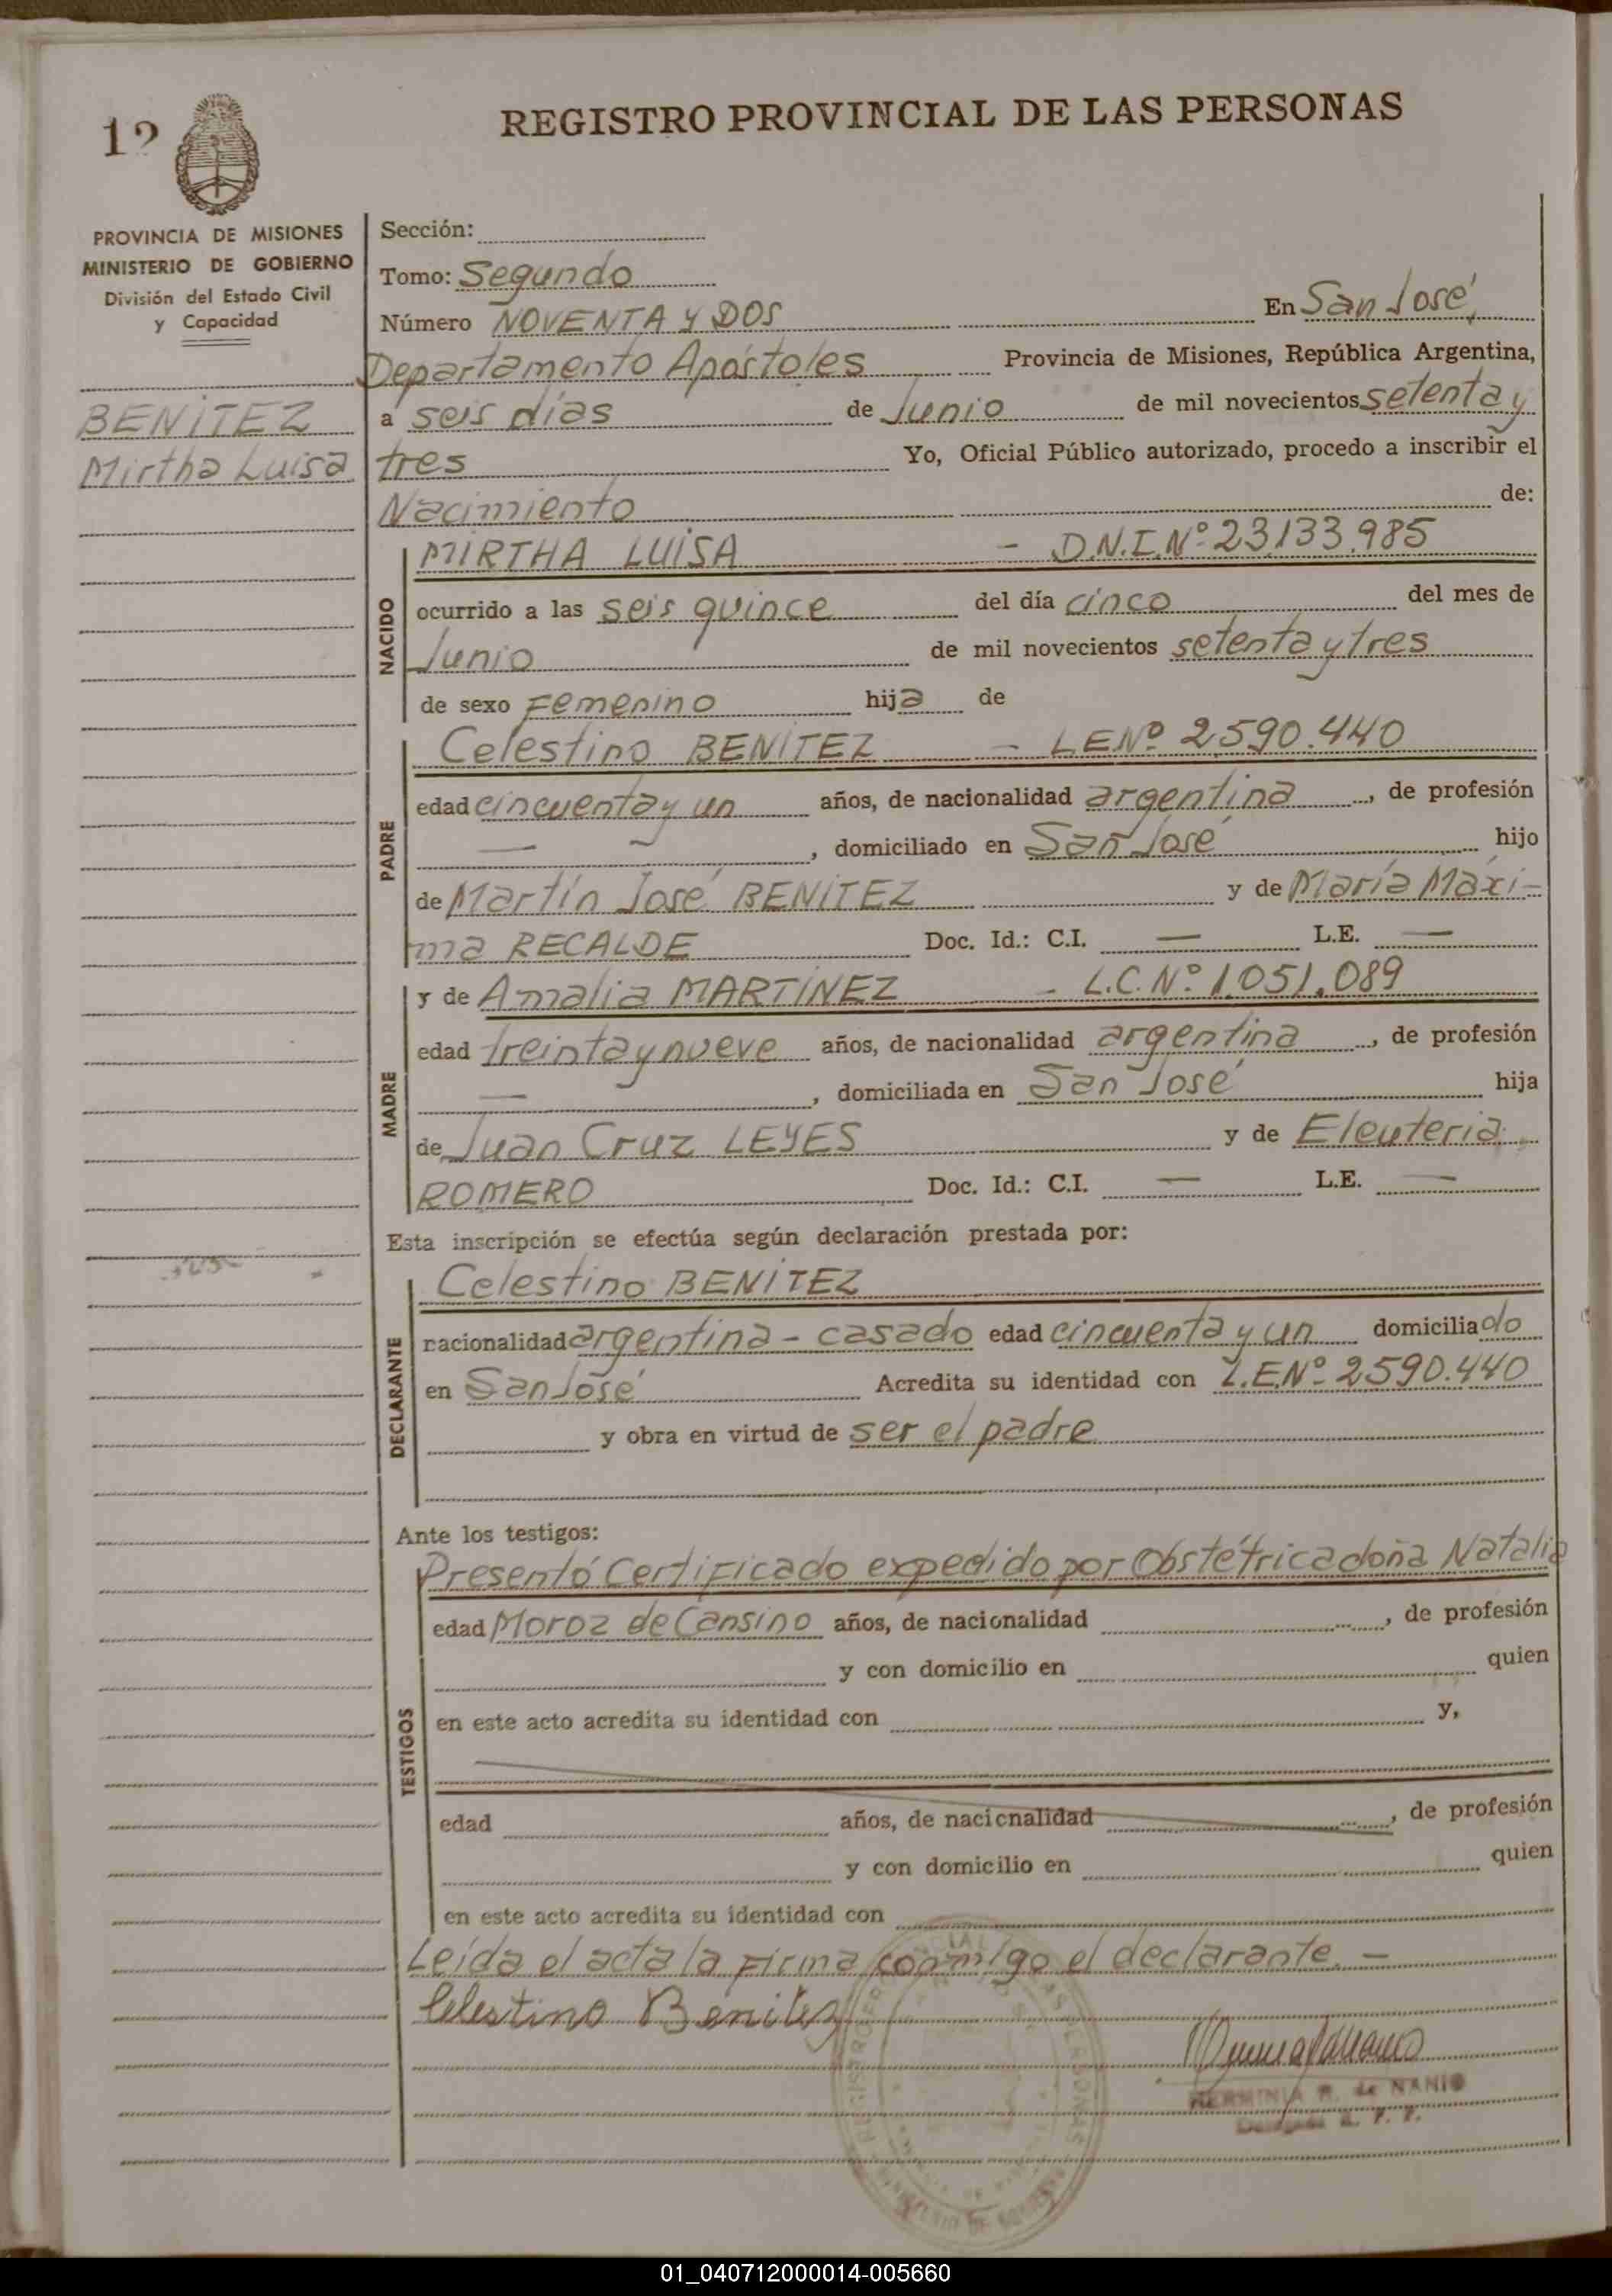 12
REGISTRO PROVINCIAL DE LAS PERSONAS
PROVINCIA DE MISIONES
MINISTERIO DE GOBIERNO
División del Estado Civil
y Capacidad
BENITEZ
Mirtha Luisa
Sección:
Tomo: Segundo
Número NOVENTA Y DOS En San José,
Departamento Apóstoles Provincia de Misiones, República Argentina,
a seis días de Junio de mil novecientos setenta y
tres Yo, Oficial Público autorizado, procedo a inscribir el
Nacimiento de:
NACIDO
MIRTHA LUISA - D.N.I.Nº 23.133.985
ocurrido a las seis quince del día cinco del mes de
Junio de mil novecientos setenta y tres
de sexo Femenino hija de
PADRE
Celestino BENITEZ - L.E.Nº 2.590.440
edad cincuenta y un años, de nacionalidad argentina, de profesión
—, domiciliado en San José hijo
de Martín José BENITEZ y de María Máxi-
ma RECALDE Doc. Id.: C.I. — L.E. —
MADRE
y de Amalia MARTINEZ - L.C.Nº 1.051.089
edad treinta y nueve años, de nacionalidad argentina, de profesión
—, domiciliada en San José hija
de Juan Cruz LEYES y de Eleuteria
ROMERO Doc. Id.: C.I. — L.E. —
Esta inscripción se efectúa según declaración prestada por:
DECLARANTE
Celestino BENITEZ
nacionalidad argentina - casado edad cincuenta y un domiciliado
en San José Acredita su identidad con L.E.Nº 2.590.440
y obra en virtud de ser el padre
Ante los testigos:
TESTIGOS
Presentó Certificado expedido por Obstétrica doña Natalia
edad Moroz de Cansino años, de nacionalidad , de profesión
y con domicilio en quien
en este acto acredita su identidad con y,
edad años, de nacionalidad , de profesión
y con domicilio en quien
en este acto acredita su identidad con
Leída el acta la firma conmigo el declarante. -
Celestino Benitez
HERMINIA R. de NANIO
01_040712000014-005660